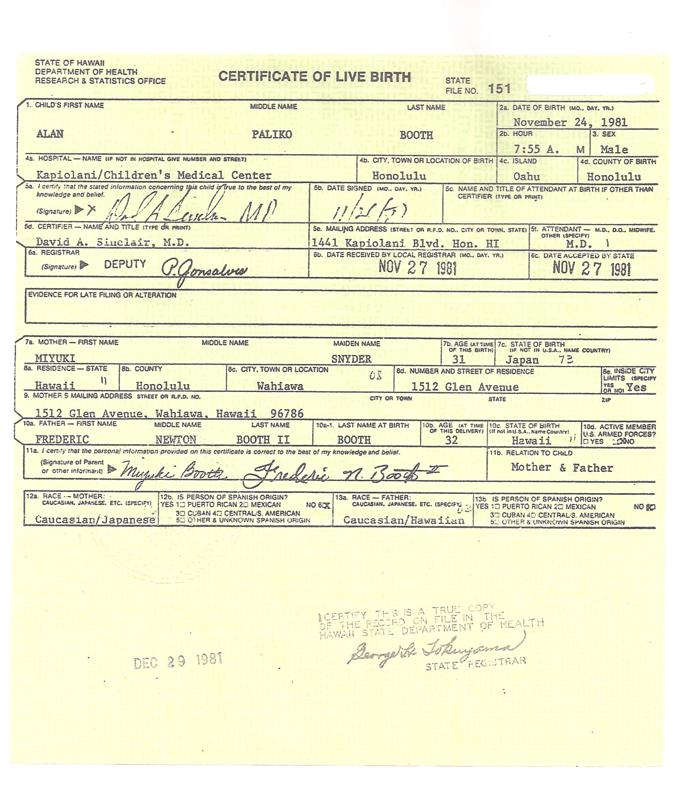 STATE OF HAWAII
DEPARTMENT OF HEALTH
RESEARCH & STATISTICS OFFICE
CERTIFICATE OF LIVE BIRTH
STATE
FILE NO. 151
1. CHILD'S FIRST NAME MIDDLE NAME LAST NAME 2a. DATE OF BIRTH (MO., DAY, YR.)
ALAN PALIKO BOOTH November 24, 1981
2b. HOUR 3. SEX
7:55 A. M Male
4a. HOSPITAL — NAME (IF NOT IN HOSPITAL GIVE NUMBER AND STREET) 4b. CITY, TOWN OR LOCATION OF BIRTH 4c. ISLAND 4d. COUNTY OF BIRTH
Kapiolani/Children's Medical Center Honolulu Oahu Honolulu
5a. I certify that the stated information concerning this child is true to the best of my knowledge and belief. 5b. DATE SIGNED (MO., DAY, YR.) 5c. NAME AND TITLE OF ATTENDANT AT BIRTH IF OTHER THAN CERTIFIER (TYPE OR PRINT)
(Signature) X MD
5d. CERTIFIER — NAME AND TITLE (TYPE OR PRINT) 5e. MAILING ADDRESS (STREET OR R.F.D. NO., CITY OR TOWN, STATE) 5f. ATTENDANT — M.D., D.O., MIDWIFE, OTHER (SPECIFY)
David A. Sinclair, M.D. 1441 Kapiolani Blvd. Hon. HI M.D. 1
6a. REGISTRAR 6b. DATE RECEIVED BY LOCAL REGISTRAR (MO., DAY, YR.) 6c. DATE ACCEPTED BY STATE
(Signature) DEPUTY P. Gonsalves NOV 27 1981 NOV 27 1981
EVIDENCE FOR LATE FILING OR ALTERATION
7a. MOTHER — FIRST NAME MIDDLE NAME MAIDEN NAME 7b. AGE (AT TIME OF THIS BIRTH) 7c. STATE OF BIRTH (IF NOT IN U.S.A., NAME COUNTRY)
MIYUKI SNYDER 31 Japan 73
8a. RESIDENCE — STATE 8b. COUNTY 8c. CITY, TOWN OR LOCATION 8d. NUMBER AND STREET OF RESIDENCE 8e. INSIDE CITY LIMITS (SPECIFY YES OR NO)
Hawaii 11 Honolulu Wahiawa 08 1512 Glen Avenue Yes
9. MOTHER'S MAILING ADDRESS STREET OR R.F.D. NO. CITY OR TOWN STATE ZIP
1512 Glen Avenue, Wahiawa, Hawaii 96786
10a. FATHER — FIRST NAME MIDDLE NAME LAST NAME 10a-1. LAST NAME AT BIRTH 10b. AGE (AT TIME OF THIS DELIVERY) 10c. STATE OF BIRTH (If not in U.S.A., Name Country) 10d. ACTIVE MEMBER U.S. ARMED FORCES?
FREDERIC NEWTON BOOTH II BOOTH 32 Hawaii 11 YES NO
11a. I certify that the personal information provided on this certificate is correct to the best of my knowledge and belief. 11b. RELATION TO CHILD
(Signature of Parent or other informant) Miyuki Booth Frederic N. Booth II Mother & Father
12a. RACE - MOTHER: CAUCASIAN, JAPANESE, ETC. (SPECIFY) 12b. IS PERSON OF SPANISH ORIGIN? 13a. RACE — FATHER: CAUCASIAN, JAPANESE, ETC. (SPECIFY) 13b IS PERSON OF SPANISH ORIGIN?
YES 1 PUERTO RICAN 2 MEXICAN NO 6 YES 1 PUERTO RICAN 2 MEXICAN NO
3 CUBAN 4 CENTRAL/S. AMERICAN 3 CUBAN 4 CENTRAL/S. AMERICAN
5 OTHER & UNKNOWN SPANISH ORIGIN 5 OTHER & UNKNOWN SPANISH ORIGIN
Caucasian/Japanese Caucasian/Hawaiian
I CERTIFY THIS IS A TRUE COPY
OF THE RECORD ON FILE IN THE
HAWAII STATE DEPARTMENT OF HEALTH
George H. Tokuyama
STATE REGISTRAR
DEC 29 1981